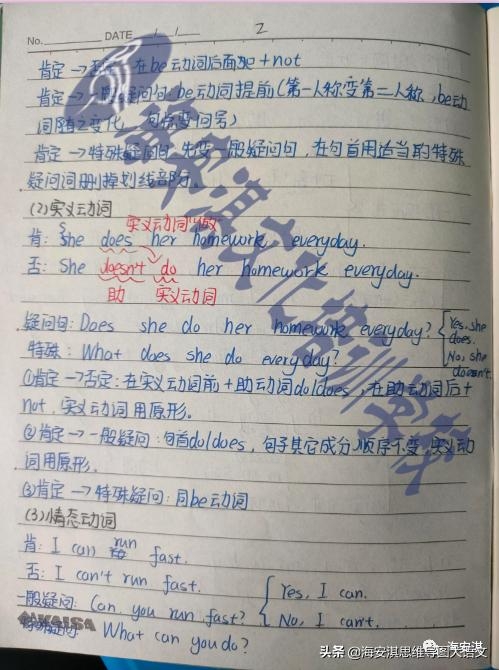 No. DATE / / 2
肯定→否定:在be动词后面加+not
肯定→一般疑问句:be动词提前(第一人称变第二人称,be动
词随之变化,句号变问号)
肯定→特殊疑问句:先变一般疑问句,在句首用适当的特殊
疑问词删掉划线部分。
(2)实义动词
实义动词"做"
肯:She does her homework everyday.
否:She doesn't do her homework everyday.
助 实义动词
疑问句:Does she do her homework everyday? Yes, she does.
No, she doesn't.
特殊:What does she do everyday?
①肯定→否定:在实义动词前+助动词do/does,在助动词后+
not,实义动词用原形。
②肯定→一般疑问:句首do/does,句子其它成分、顺序不变,实义动
词用原形。
③肯定→特殊疑问:同be动词
(3)情态动词
肯:I can run fast.
否:I can't run fast.
一般疑问:Can you run fast? Yes, I can.
No, I can't.
特殊疑问: What can you do?
KAISA
海安淇文化培训学校
海安淇
头条@海安淇思维导图大语文